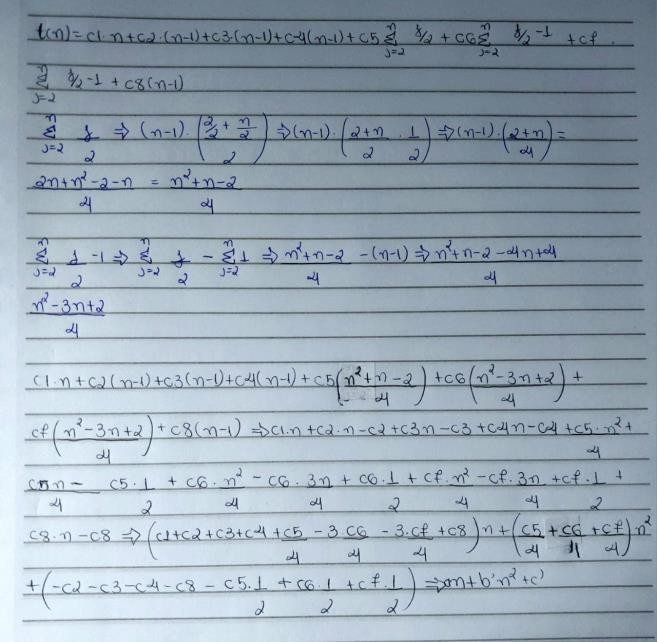 t(n) = c1·n+c2·(n-1)+c3·(n-1)+c4(n-1)+c5 n∑j=2 j/2 + c6 n∑j=2 j/2 -1 + cf.
n∑j=2 j/2 -1 + c8(n-1)
n∑j=2 j/2 ⇒ (n-1)·((2/2 + n/2)/2) ⇒ (n-1)·((2+n)/2 · 1/2) ⇒ (n-1)·((2+n)/4) =
(2n+n²-2-n)/4 = (n²+n-2)/4
n∑j=2 j/2 -1 ⇒ n∑j=2 j/2 - n∑j=2 1 ⇒ (n²+n-2)/4 - (n-1) ⇒ (n²+n-2-4n+4)/4
(n²-3n+2)/4
c1·n+c2(n-1)+c3(n-1)+c4(n-1)+c5((n²+n-2)/4) + c6((n²-3n+2)/4) +
cf((n²-3n+2)/4) + c8(n-1) ⇒ c1·n+c2·n-c2+c3n-c3+c4n-c4+c5·n²/4 +
c5n/4 - c5·1/2 + c6·n²/4 - c6·3n/4 + c6·1/2 + cf·n²/4 - cf·3n/4 + cf·1/2 +
c8·n-c8 ⇒ (c1+c2+c3+c4+c5/4 - 3c6/4 - 3·cf/4 + c8)n + (c5/4 + c6/4 + cf/4)n²
+ (-c2-c3-c4-c8 - c5·1/2 + c6·1/2 + cf·1/2) ⇒ an+b'n²+c'